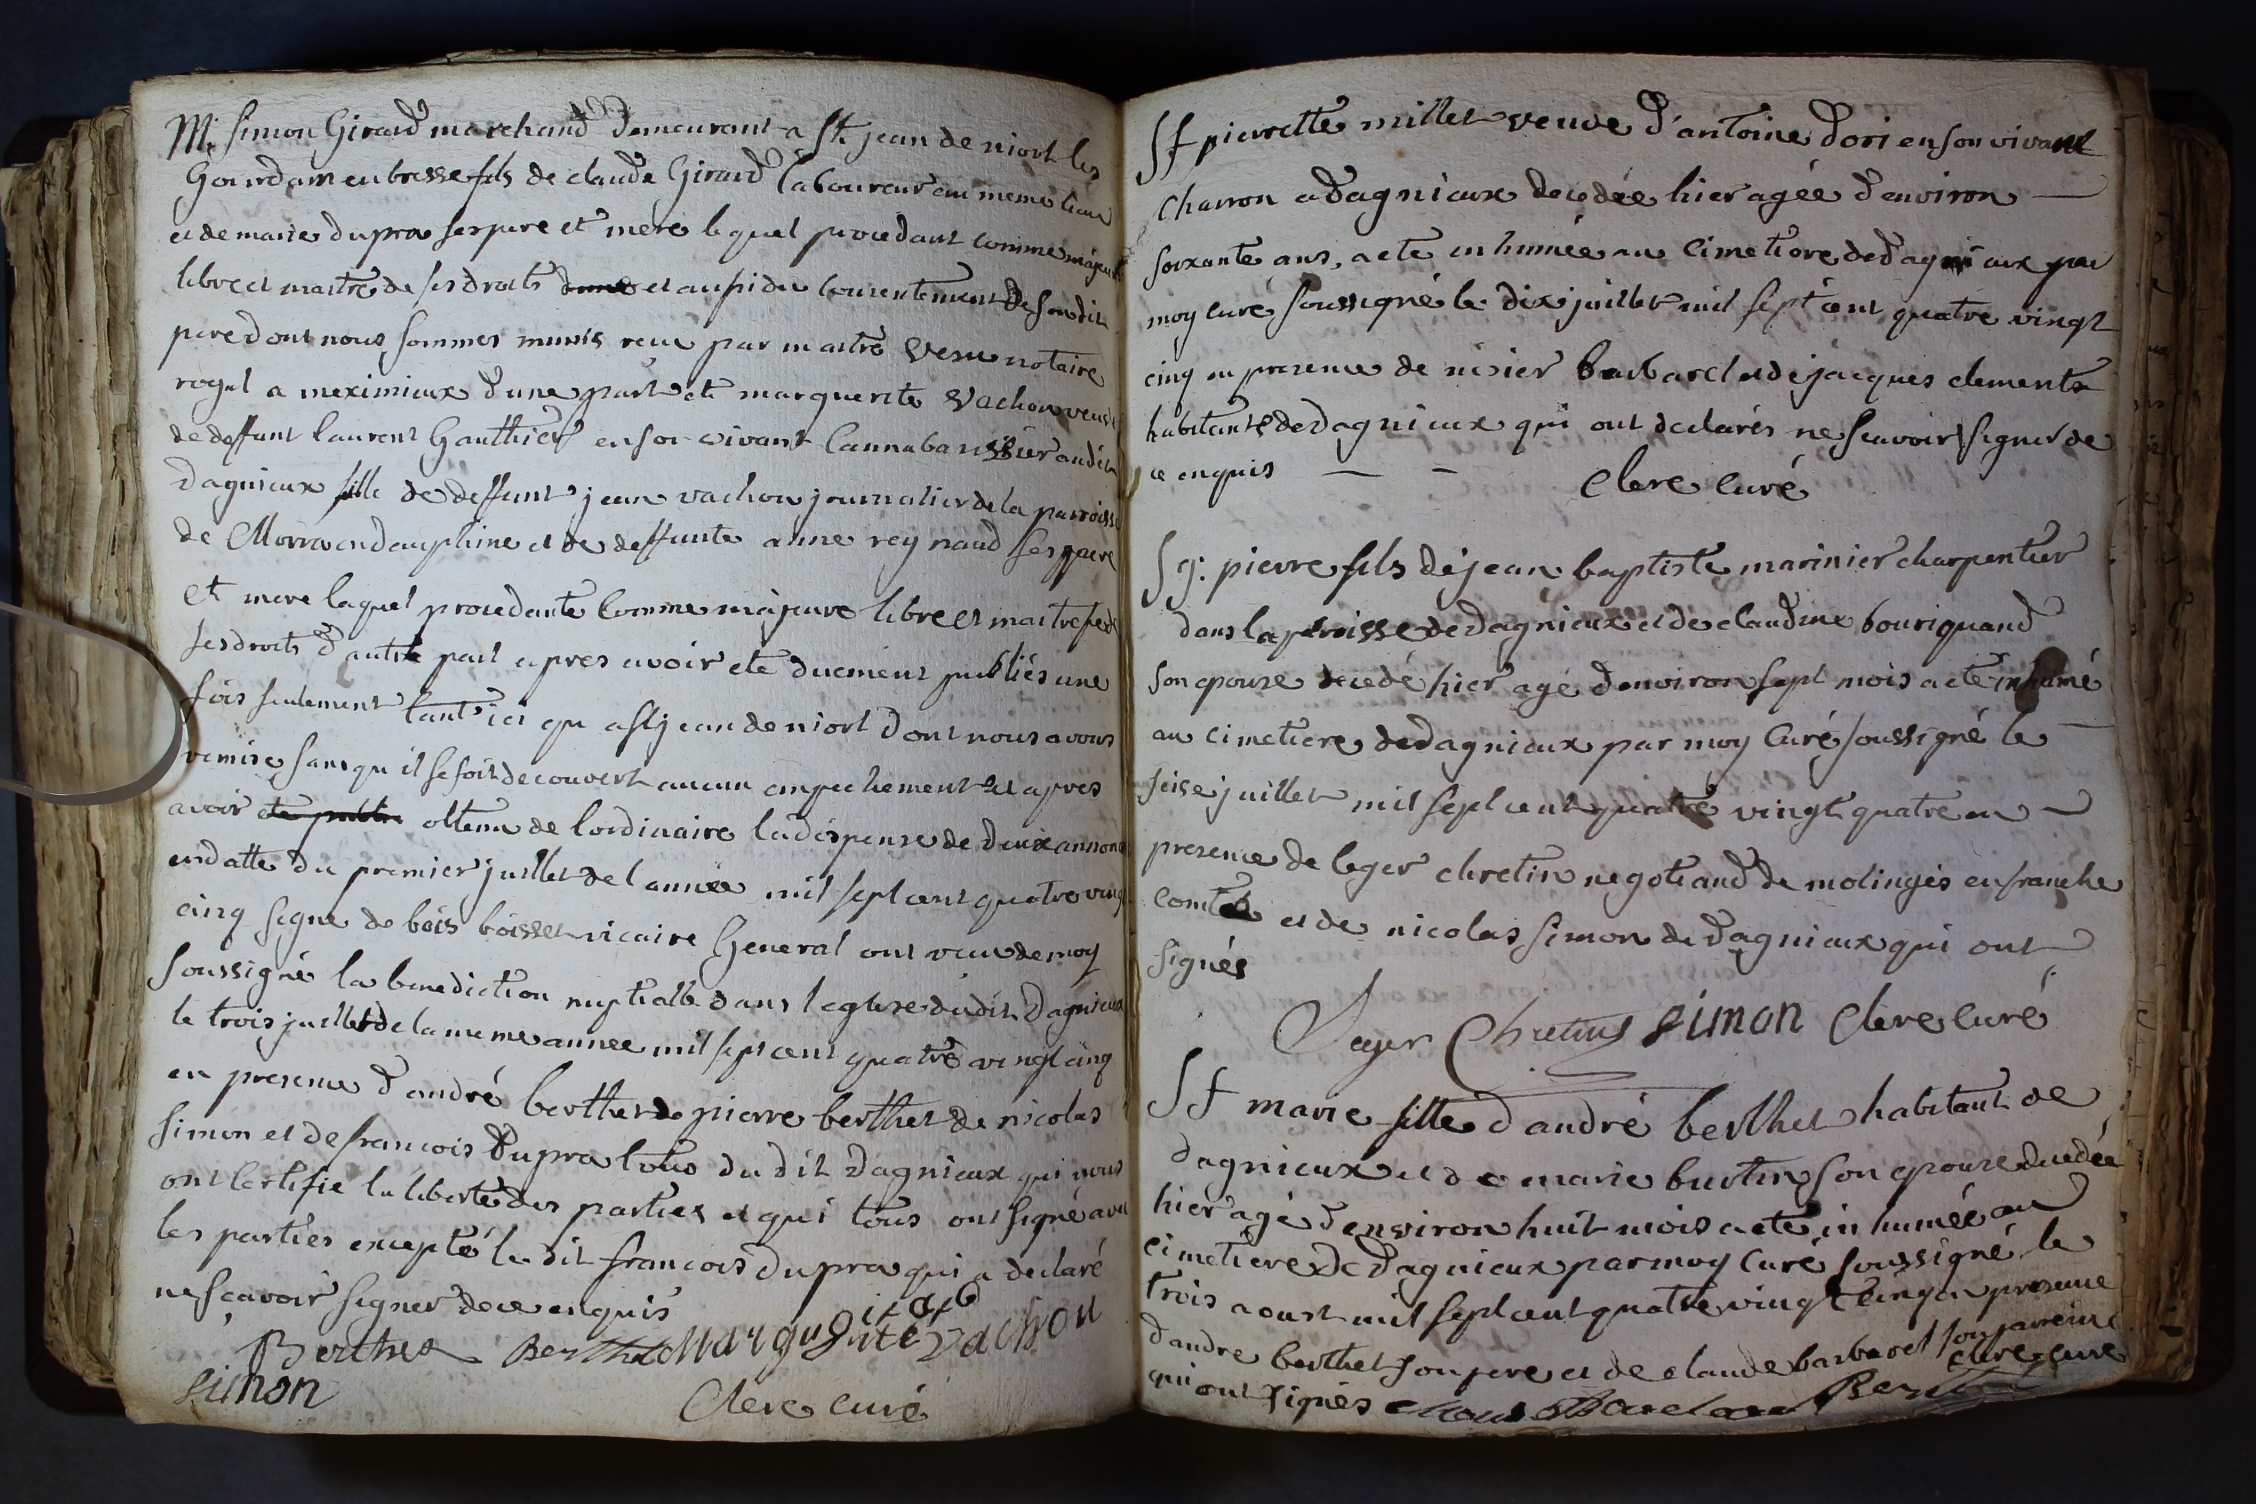 M. simon Girard marchand demeurant a St jean de niort les
Gourdan en bresse fils de claude Girard laboureur au meme lieu
et de marie dupra ses pere et mere lequel procedant comme majeur
libre et maitre de ses droits et aussi du consentement de son dit
pere dont nous sommes munis recu par maitre notaire
royal a meximieux d'une part et marguerite vachon veuve
de deffunt laurent Gauthier en son vivant Cannabassier audit
dagnieux fille de deffunt jean vachon journalier de la parroisse
de Morra en dauphine et de deffunte anne reynaud ses pere
et mere laquel procedante comme majeure libre et maitresse de
ses droits d'autre part apres avoir ete duement publiés une
fois seulement tant ici qu a St jean de niort dont nous avons
remise sans qu il se soit decouvert aucun empechement et apres
avoir ete publie obtenu de lordinaire la dispense de deux annonces
en datte du premier juillet de l année mil sept cent quatre vingt
cinq signe de bois boisset vicaire General ont recu de moy
soussigné la benediction nuptialle dans leglise dudit Dagnieux
le trois juillet de la meme annee mil sept cent quatre vingt cinq
en presence d'andré berthet de pierre berthet de nicolas
simon et de francois Dupra tous du dit Dagnieux qui nous
ont certifie la liberte des parties et qui tous ont signé avec
les parties excepté le dit francois Dupra qui a declaré
ne scavoir signer de ce enquis
Berthet Berthet Marguerite vachon
simon
Clerc curé
Sf pierrette millet veuve d'antoine dori en son vivant
charron a dagnieux decedée hier agée d'environ
soixante ans, a ete in humée au cimetiere de dagnieux par
moy curé soussigné le dix juillet mil sept cent quatre vingt
cinq en presence de nisier barbaret et de jacques clement
habitants de dagnieux qui ont declarés ne scavoir signer de
ce enquis
Clerc curé
Sg: pierre fils de jean baptiste marinier charpentier
dans la paroisse de Dagnieux et de claudine bouriquand
son epouse decedé hier agé d'environ sept mois a ete inhumé
au cimetiere de dagnieux par moy Curé soussigné le
seise juillet mil sept cent quatre vingt quatre en
presence de leger chretin negotiand de molinges en franche
comté et de nicolas simon de dagnieux qui ont
signés
Leger Chretin simon Clerc curé
Sf marie fille d'andré berthet habitant de
dagnieux et de marie burtin son epouse decedée
hier agé d'environ huit mois a ete in humée au
cimetiere de dagnieux par moy Curé soussigné le
trois aoust mil sept cent quatre vingt cinq en presence
d'andre berthet son pere et de claude barbaret son parreine
qui ont signés Clerc curé